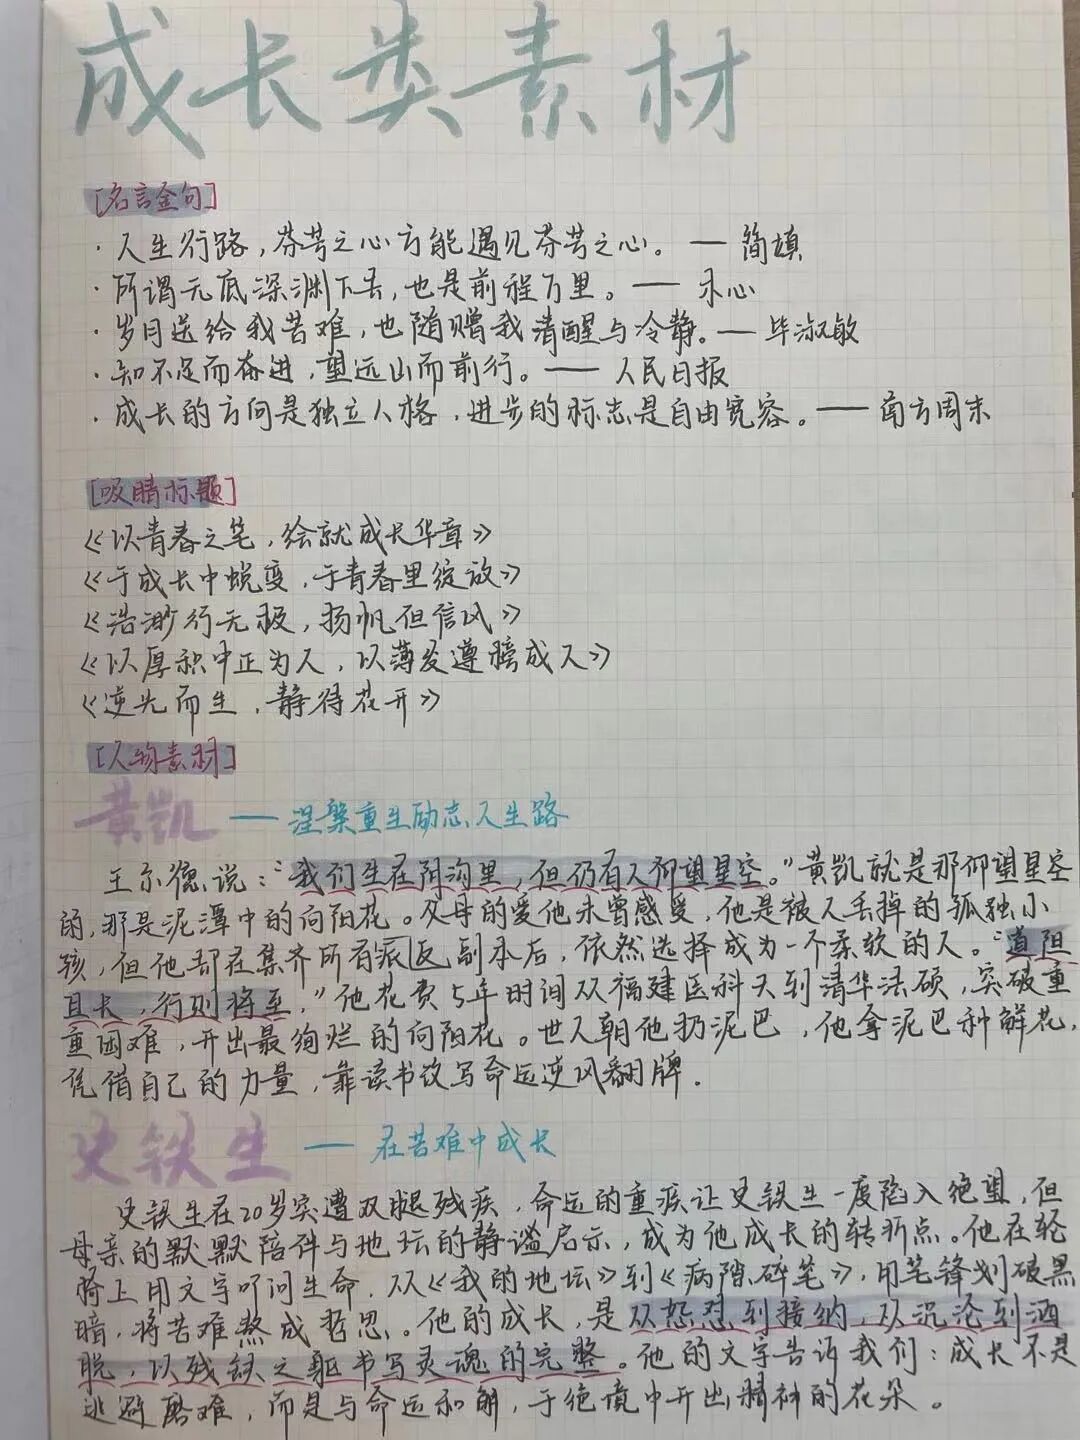 成长类素材
[名言金句]
·人生行路，芬芳之心方能遇见芬芳之心。——简媜
·所谓无底深渊下去，也是前程万里。——木心
·岁月送给我苦难，也随赠我清醒与冷静。——毕淑敏
·知不足而奋进，望远山而前行。——人民日报
·成长的方向是独立人格，进步的标志是自由宽容。——南方周末
[吸睛标题]
《以青春之笔，绘就成长华章》
《于成长中蜕变，于青春里绽放》
《浩渺行无极，扬帆但信风》
《以厚积中正为人，以薄发遵成人》
《逆光而生，静得花开》
[人物素材]
黄凯——涅槃重生励志人生路
王尔德说：“我们生在阴沟里，但仍有人仰望星空。”黄凯就是那仰望星空
的，那是泥潭中的向阳花。父母的爱他未曾感受，他是被人丢掉的孤独小
孩，但他却在集齐所有派反副本后，依然选择成为一个柔软的人。“道阻
且长，行则将至，”他花费5年时间从福建医科大到清华法硕，突破重
重困难，开出最绚烂的向阳花。世人朝他扔泥巴，他拿泥巴种鲜花，
凭借自己的力量，靠读书改写命运逆风翻牌.
史铁生——在苦难中成长
史铁生在20岁突遭双腿残疾，命运的重疾让史铁生一度陷入绝望，但
母亲的默默陪伴与地坛的静谧启示，成为他成长的转折点。他在轮
椅上用文字叩问生命，从《我的地坛》到《病隙碎笔》，用笔锋划破黑
暗，将苦难熬成哲思。他的成长，是从怨怼到接纳，从沉沦到洒
脱，以残缺之躯书写灵魂的完整。他的文字告诉我们：成长不是
逃避磨难，而是与命运和解，于绝境中开出精神的花朵。